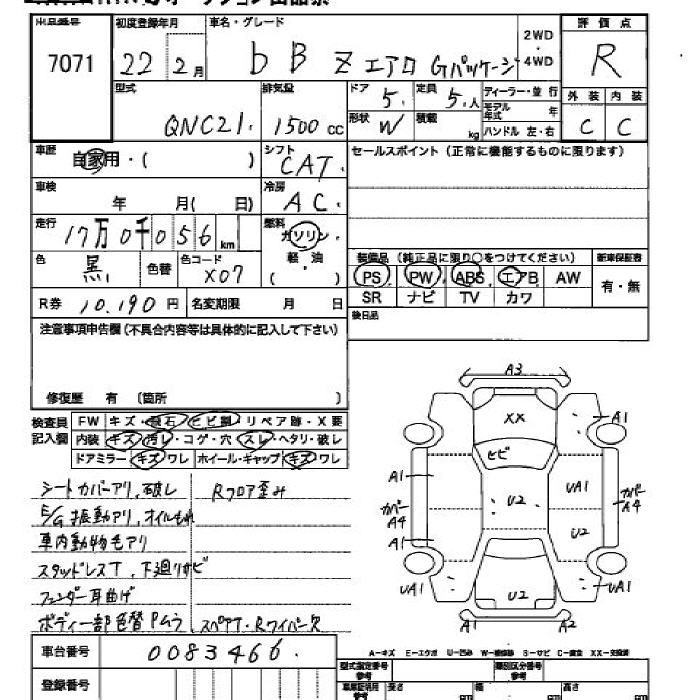 出品番号 初度登録年月 車名・グレード 2WD・4WD 評価点
7071 22年 2月 bB Z エアロ Gパッケージ R
型式 排気量 ドア 定員 ディーラー・並行 外装 内装
QNC21. 1500cc 5. 5.人 モデル年式 年 C C
形状 W 積載 kg ハンドル 左・右
車歴 自家用・( ) シフト CAT. セールスポイント (正常に機能するものに限ります)
車検 年 月( 日) 冷房 AC.
走行 17万0千056km 燃料 ガソリン・軽・油 ( )
色 黒. 色替 色コード X07
装備品 (純正品に限り○をつけてください) 新車保証書
PS PW ABS エアB AW 有・無
SR ナビ TV カワ
R券 10.190円 名変期限 月 日 後日品
注意事項申告欄(不具合内容等は具体的に記入して下さい)
修復歴 有 〔箇所 〕
検査員記入欄 FW キズ・飛石・ヒビ割・リペア跡・X要
内装 キズ・汚レ・コゲ・穴・スレ・ヘタリ・破レ
ドアミラー キズ・ワレ ホイール・キャップ キズ・ワレ
シートカバーアリ、破レ Rフロア歪み
E/G振動アリ、オイルもれ
車内動物毛アリ
スタッドレスT、下廻りサビ
フェンダー耳曲げ
ボディ一部色替Pムラ スペアT・Rワイパー欠
A3
XX A1
ヒビ
A1 UA1
カバーA4 U2 カバーA4
A1 U2
UA1 U2 UA1
A1 A2
A=キズ E=エクボ U=凹み W=補修跡 S=サビ C=腐食 XX=交換済
車台番号 0083466.
登録番号
型式指定番号 参考 類別区分番号 参考
車庫証明用 参考 長さ cm 幅 cm 高さ cm